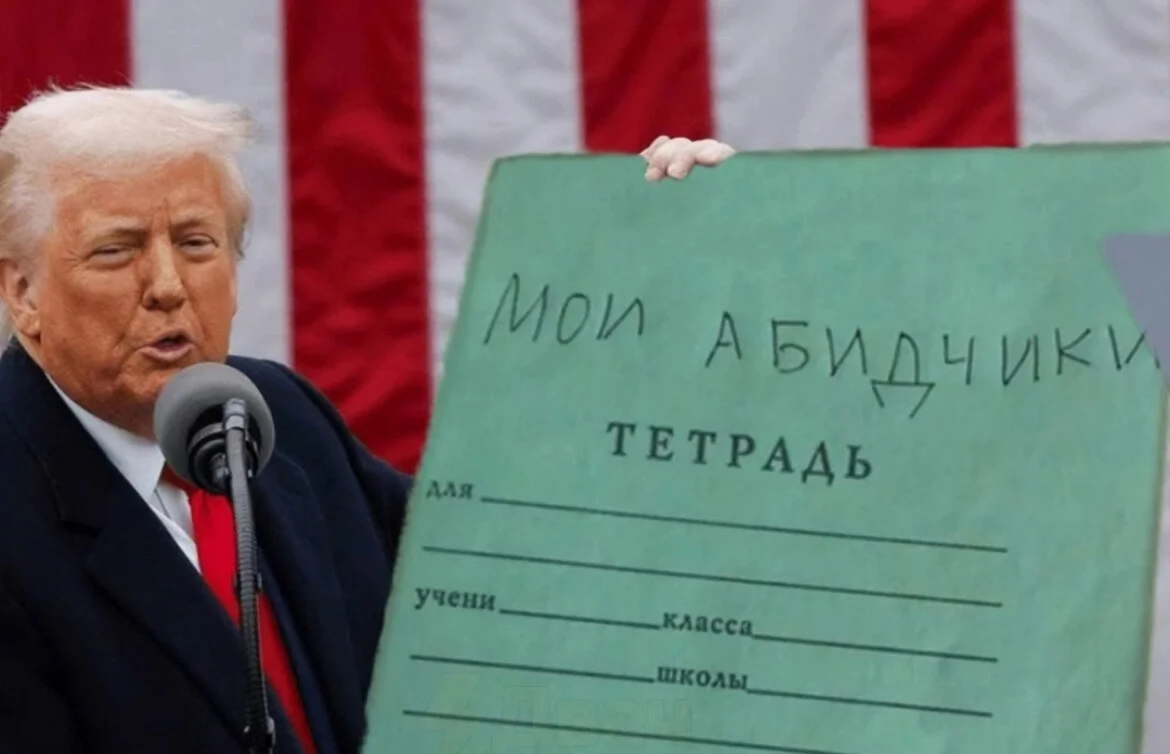 МОИ АБИДЧИКИ
ТЕТРАДЬ
для
учени класса
школы